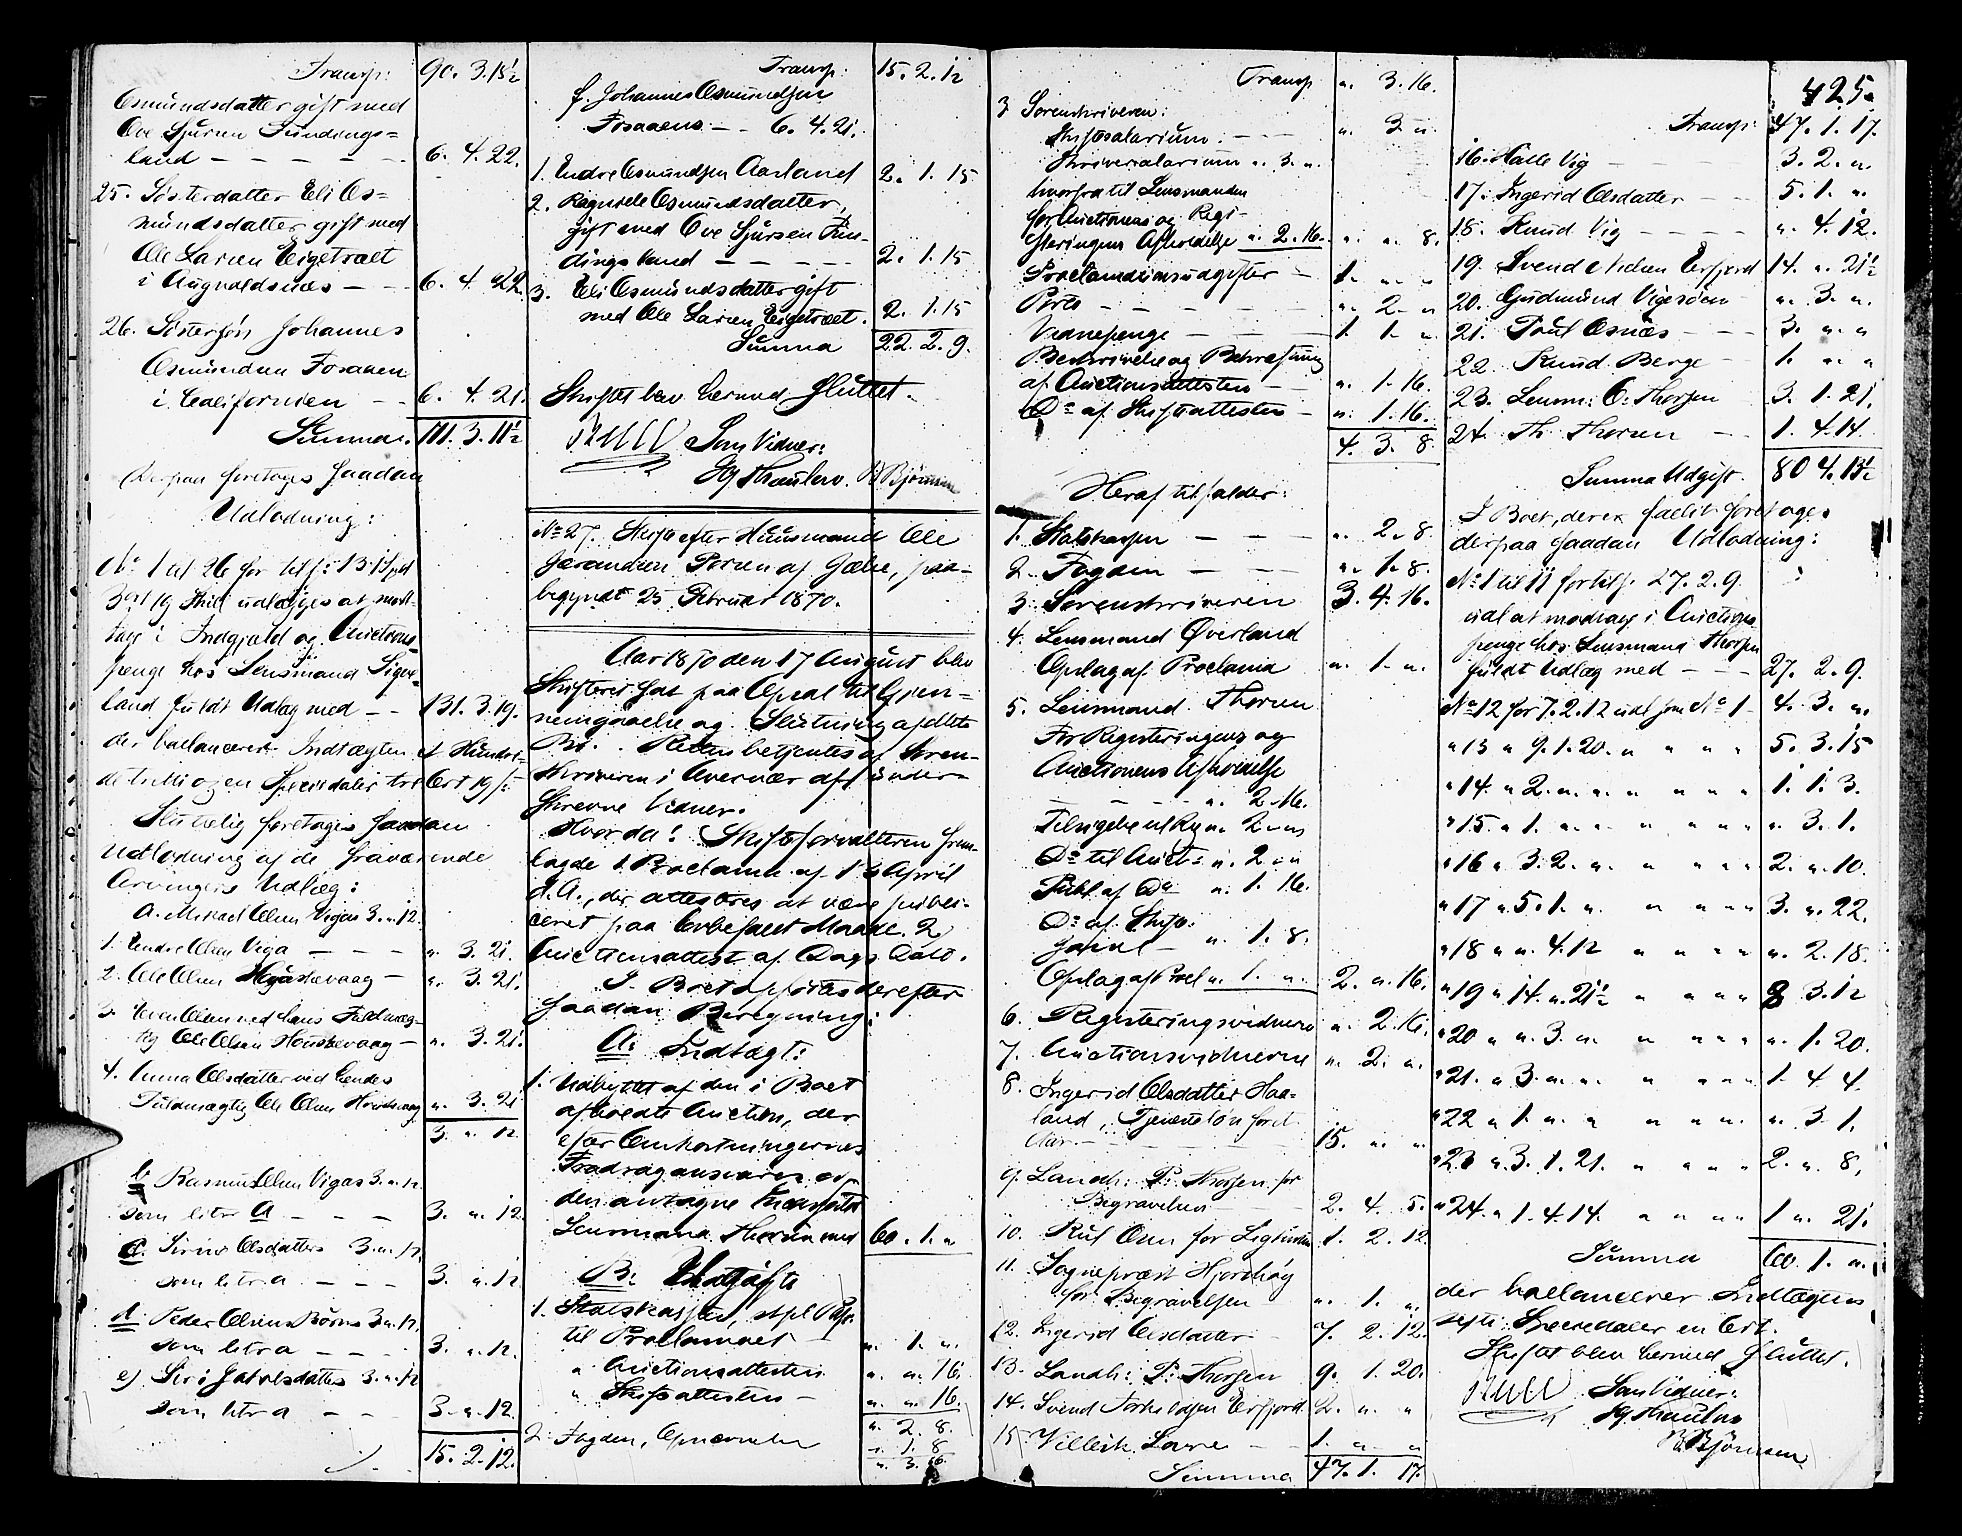 Transp: 90. 3. 15½
Osmundsdatter gift med
Ove Sjursen Fundings=
land — — — — — 6. 4. 22.
25. Søsterdatter Eli Os=
mundsdatter gift med
Ole Larsen Eigetvæt
i Augvaldsnæs — — 6. 4. 22.
26. Søstersøn Johannes
Osmundsen Fosaaen
i Californien — — 6. 4. 21.
Summa. 111. 3. 11½
Derpaa foretages saadan
Udlodning:
No 1 til 26 for tils: 131 Spd
3 ort 19 Skill udlægges at mod-
tage i Indgjæld og Auctions
penge hos Lensmand
land fuldt Udlæg med — — 131. 3. 19.
der ballancerer Indtægten et Hundre-
de tretti og en Speciedaler tre Ort 19 s:
Sluttelig foretages saadan
Udlodning af de fraværende
Arvingers Udlæg:
a. Mikael Olsen Vigas 3. " 12.
1. Endre Olsen Viga — — — ". 3. 21.
2. Ole Olsen — ". 3. 21.
3. Olsen ved hans Fuldmæg-
tig Ole Olsen — ". 3. 21.
4. Anna Olsdatter ved hendes
Fuldmægtig Ole Olsen ". 3. 21.
3. ". 12.
b Rasmus Olsen Vigas 3. ". 12.
som litr a — — — 3. ". 12.
c. Siri Olsdatters 3. ". 12.
som litr a — — — 3. ". 12
d. Peder Olsens Børns 3. ". 12.
som litr a — — — 3. ". 12.
e) Siri 3. ". 12
som litr a — — — 3. ". 12.
15. 2. 12.
Transp: 15. 2. 12
f. Johannes Osmundsen
Fosaaens — — 6. 4. 21.
1. Endre Osmundsen Aarland 2. 1. 15
2. Osmundsdatter,
gift med Ove Sjursen Fun-
dingsland — — — — — 2. 1. 15
3. Eli Osmundsdatter gift
med Ole Larsen Eigetvæt. 2. 1. 15
Summa 22. 2. 9.
Skiftet blev hermed sluttet.
Som Vidner:
B Bjørnsen
No 27. Skifte efter Huusmand Ole
af Jælse, paa-
begyndt 25 Februar 1870.
Aar 1870 den 17 August blev
Skifteret sat paa Opsal til Gjen-
nemgaaelse og Slutning af dette
Bo. Retten betjentes af Soren-
skriveren i Overvær af under-
skrevne Vidner.
Hvorda: Skifteforvalteren frem-
lagde 1. Proclama af April
d. A., der attesteres at være publi-
ceret paa lovbefalet Maade. 2,
Auctionsattest af Dags Dato.
I Boet opføres derefter
saadan Beregning:
A: Indtægt:
1. Udbyttet af den i Boet
afholdte Auction, der
efter Omkostningernes
Fradrag ansvares af
den antagne
Lensmand Thorsen med 60. 1. "
B: Udgift
1. Statskassen, stpl Papir
til Proclamaet ". 1. ".
" Auctionsattesten ". ". 16.
" Skifteattesten — ". ". 16.
". 2. 8.
2. Fogden, ". 1. 8
". 3. 16.
Transp ". 3. 16.
3 Sorenskriveren:
Skiftesalarium. — — ". 3 ".
Skriversalarium ". 3. ".
hvorfra til Lensmanden
for Auctionens og Regi-
steringens Afholdelse ". 2. 16. ". ". 8.
Proclamationsudgifter — 1. ". "
Porto — — — — — ". 2. "
Vidnepenge — — — 1. 1. ".
Beskrivelse og Bekræftning
af Auctionsattesten — ". 1. 16.
Do af Skifteattesten — ". 1. 16.
4. 3. 8.
Heraf tilfalder:
1. Statskassen — — — ". 2. 8.
2. Fogden — — ". 1. 8.
3. Sorenskriveren 3. 4. 16.
4. Lensmand Øverland
Oplag af Proclama ". 1. ".
5. Lensmand Thorsen
For Registeringens og
Auctionens Afholdelse
— — — ". 2. 16.
Tilsigelse til Reg ". 2. "
Do til Auct: ". 2. "
Publ af Do ". 1. 16.
Do af Skifte
— ". 1. 8.
Oplag af Procl ". 1. ". 2. ". 16.
6. Registeringsvidnerne ". 2. 16.
7. Auctionsvidnerne ". 2. ".
8. Ingerid Olsdatter Haa-
land, Tjenestløn
Aar — — — — — 15. ". ".
9. Landh: P: Thorsen for
Begravelsen — — 2. 4. 5.
10. Rut Osm for 1. 2. 12
11. Sognepræst
for Begravelsen — ". 1. "
12. Ingerid Olsdatter — 7. 2. 12.
13. Landh: P: Thorsen 9. 1. 20.
14. Svend Eirfjord 2. ". "
15 — — 1. ". "
Summa 47. 1. 17.
425.
Transp: 47. 1. 17.
16. Halle Vig — — — 3. 2. ".
17. Ingerid Olsdatter — 5. 1. ".
18. Knud Vig — — — — ". 4. 12.
19. Svend Nilsen Eirfjord 14. ". 21½
20. Gudmund Vigesøen ". 3. ".
21. Poul Osnæs — — — 3. ". "
22. Knud Berge — 1. ". "
23. Lensm: O: Thorsen 3. 1. 21.
24. Th: Thorsen — 1. 4. 14.
Summa Udgift. 80 4. 13½
I Boet, der er fallit foretages
derpaa saadan Udlodning:
No 1 til 11 for tils. 27. 2. 9.
udl at modtage i Auctions
penge hos Lensmand Thorsen
fuldt Udlæg med — — — 27. 2. 9.
No 12 for 7. 2. 12 udl som No 1 — 4. 3. ".
" 13 " 9. 1. 20. " " " " 5. 3. 15
" 14 " 2. ". ". " " " " 1. 1. 3.
" 15. " 1. ". ". " " " " ". 3. 1.
" 16 " 3. 2. ". " " " " 2. ". 10.
" 17 " 5. 1. ". " " " " 3. ". 22.
" 18 " ". 4. 12 " " " " ". 2. 18.
" 19 " 14. ". 21½ " " " " 8 3. 12
" 20 " ". 3. ". " " " " ". 1. 20.
" 21. " 3. ". ". " " " " 1. 4 4.
" 22 " 1. ". " " " " " ". 3. 1.
" 23 " 3. 1. 21. " " " " 2. ". 8.
" 24. " 1. 4. 14. " " " " 1 ". 21.
Summa 60. 1. ".
der ballancerer Indtægten
Speciedaler en Ort.
Skiftet blev hermed sluttet.
Som Vidner:
B Bjørnsen